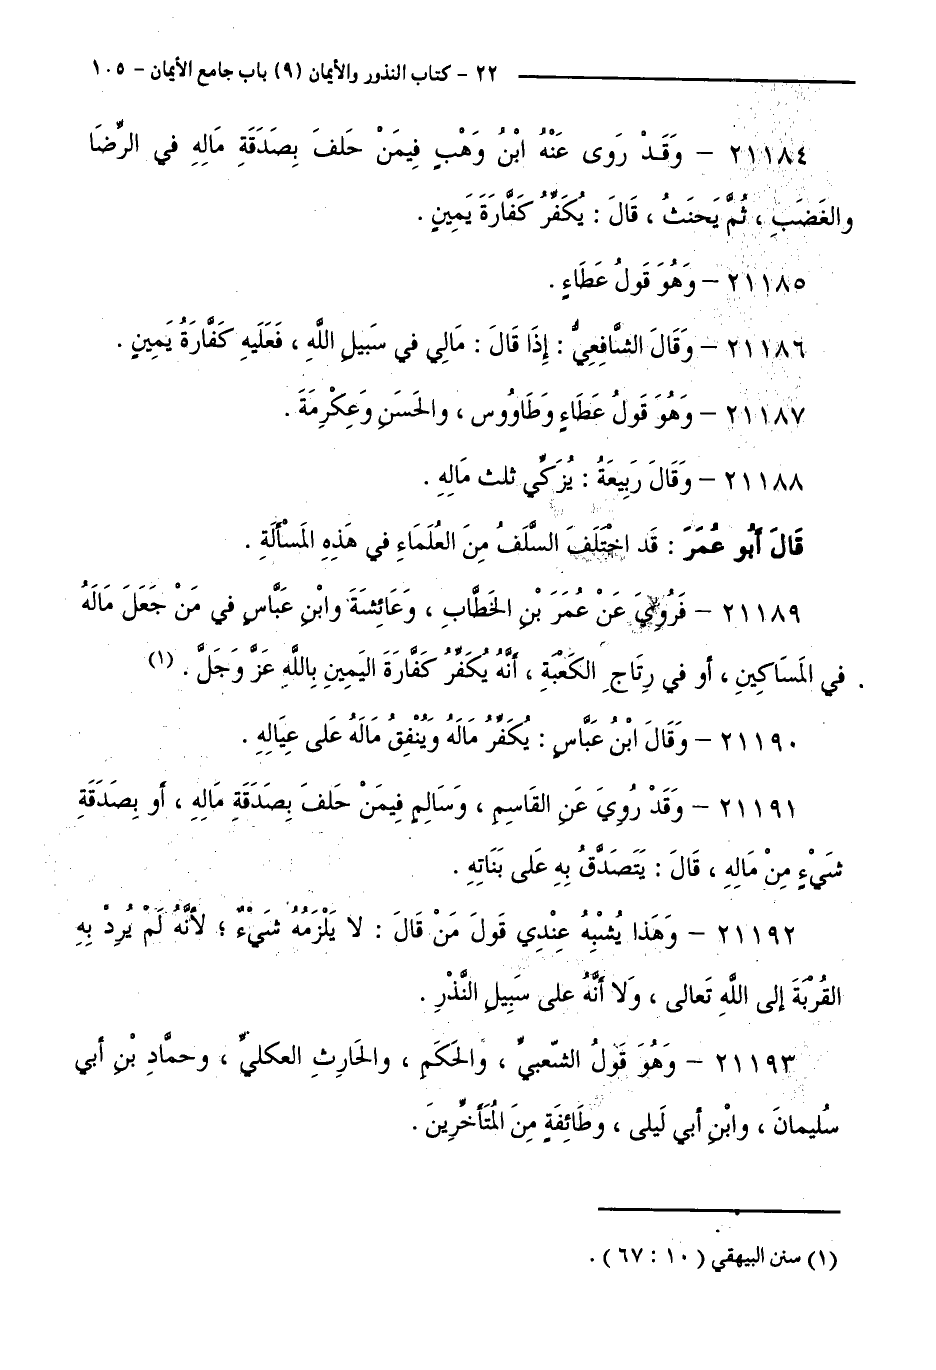 ٢٢ - كتاب النذور والأيمان (٩) باب جامع الأيمان - ١٠٥
٢١١٨٤ - وَقَدْ رَوى عَنْهُ ابْنُ وَهْبٍ فِيمَنْ حَلفَ بِصَدَقَةِ مَالِهِ في الرِّضَا
والغَضَبِ ، ثُمَّ يَحنَثُ ، قَالَ : يُكَفِّرُ كَفَّارَةَ يَمِينٍ .
٢١١٨٥ - وَهُوَ قَولُ عَطَاءٍ .
٢١١٨٦ - وَقَالَ الشَّافِعِيُّ : إِذَا قَالَ : مَالِي في سَبِيلِ اللَّهِ ، فَعَلَيهِ كَفَّارَةُ يَمِينٍ .
٢١١٨٧ - وَهُوَ قَولُ عَطَاءٍ وَطَاوُوس ، والحَسَنِ وَعِكْرِمَةَ .
٢١١٨٨ - وَقَالَ رَبِيعَةُ : يُزَكِّي ثلث مَالِهِ .
قَالَ أَبُو عُمَرَ : قَد اخْتَلَفَ السَّلَفُ مِنَ العُلَمَاءِ في هَذِهِ المَسْأَلَةِ .
٢١١٨٩ - فَرُوِيَ عَنْ عُمَرَ بْنِ الخَطَّابِ ، وَعَائِشَةَ وابْنِ عَبَّاسٍ في مَنْ جَعَلَ مَالَهُ
في المَسَاكِينِ ، أو في رِتَاجِ الكَعْبَةِ ، أَنَّهُ يُكَفِّرُ كَفَّارَةَ اليَمِينِ بِاللَّهِ عَزَّ وَجَلَّ . (١)
٢١١٩٠ - وَقَالَ ابْنُ عَبَّاسٍ : يُكَفِّرُ مَالَهُ وَيُنْفِقُ مَالَهُ عَلى عِيَالِهِ .
٢١١٩١ - وَقَدْ رُوِيَ عَنِ القَاسِمِ ، وَسَالِمٍ فِيمَنْ حَلفَ بِصَدَقَةِ مَالِهِ ، أَو بِصَدَقَةِ
شَيْءٍ مِنْ مَالِهِ ، قَالَ : يَتَصَدَّقُ بِهِ عَلى بَنَاتِهِ .
٢١١٩٢ - وَهَذا يُشْبِهُ عِنْدِي قَولَ مَنْ قَالَ : لا يَلْزَمُهُ شَيْءٌ ؛ لأَنَّهُ لَمْ يُرِدْ بِهِ
القُرْبَةَ إلى اللَّهِ تَعالى ، وَلا أَنَّهُ على سَبِيلِ النَّذْرِ .
٢١١٩٣ - وَهُوَ قَولُ الشّعبيِّ ، والحَكَمِ ، والحَارِثِ العكليِّ ، وحمَّادِ بْنِ أَبي
سُليمانَ ، وابْنِ أبي لَيلى ، وطَائِفَةٍ مِنَ المُتَأَخِّرِينَ .
(١) سنن البيهقي ( ١٠ : ٦٧ ) .